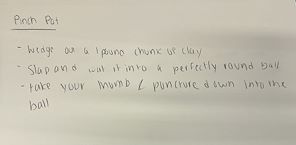 Pinch Pot
- Wedge out a 1 pound chunk of clay
- Slap and wat it into a perfectly round ball
- take your thumb & puncture down into the
ball